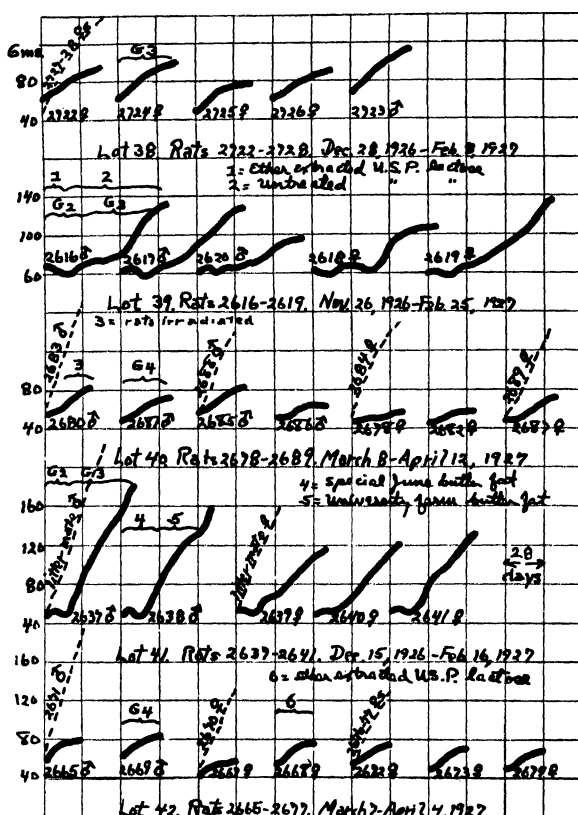 Gms.
G3
80
40
2722♀ 2724♀ 2725♀ 2726♀ 2723♂
Lot 38. Rats 2722-2728. Dec. 28, 1926-Feb. 8, 1927
1 = Ether extracted U.S.P. lactose
2 = Untreated " "
140
1 2
G2 G3
100
2616♂ 2617♂ 2620♂ 2618♀ 2619♀
60
Lot 39. Rats 2616-2619. Nov. 26, 1926-Feb. 25, 1927
3 = rats irradiated
2683♂ 2688♂ 2684♀ 2689♀
3 G4
80
40
2680♂ 2681♂ 2685♂ 2686♂ 2678♀ 2682♀ 2687♀
Lot 40. Rats 2678-2689. March 8-April 12, 1927
4 = special June butter fat
5 = University farm butter fat
G2 G3
160
4 5
120
28
days
80
40
2637♂ 2638♂ 2639♀ 2640♀ 2641♀
Lot 41. Rats 2637-2641. Dec. 15, 1926-Feb. 16, 1927
6 = ether extracted U.S.P. lactose
160
2671♂
120
G4 6
80
40
2665♂ 2669♂ 2667♀ 2668♀ 2672♀ 2673♀ 2677♀
Lot 42. Rats 2665-2677. March 7-April 4, 1927